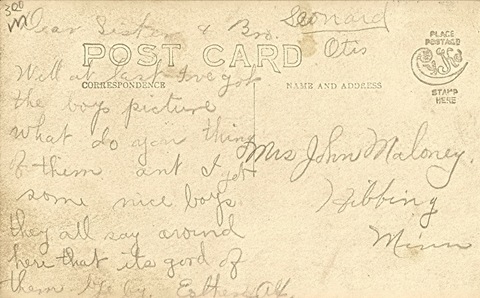 300
Dear Sister & Bro.
Leonard
Otis
POST CARD
PLACE
POSTAGE
STAMP
HERE
CORRESPONDENCE
NAME AND ADDRESS
Well at last I've got
the boys picture
what do you thing
of them ant I get
some nice boys
they all say around
here that its good of
them by. Esther
Mrs John Maloney.
Hibbing
Minn